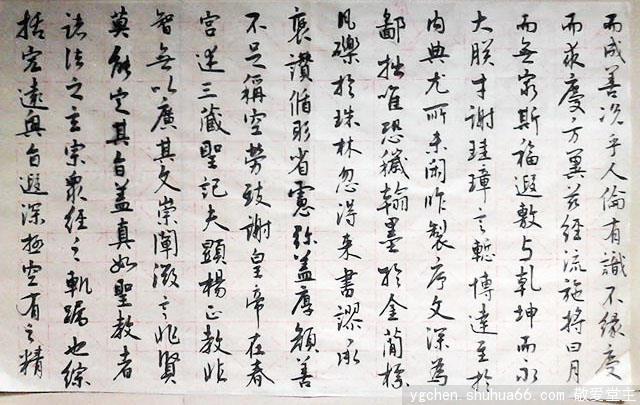 而成善况乎人倫有識不緣慶
而求慶方冀兹經流施將日月
而無窮斯福遐敷与乾坤而永
大朕才謝珪璋言慙博達至於
内典尤所未閑昨製序文深為
鄙拙唯恐穢翰墨於金簡標
瓦礫於珠林忽得来書謬承
褒讚循躬省慮弥益厚顔善
不足稱空勞致謝皇帝在春
宫述三藏聖記夫顯揚正教非
智無以廣其文崇闡微言非賢
莫能定其旨盖真如聖教者
諸法之玄宗衆經之軌躅也綜
括宏遠奥旨遐深極空有之精
ygchen.shuhua66.com 敬爱堂主